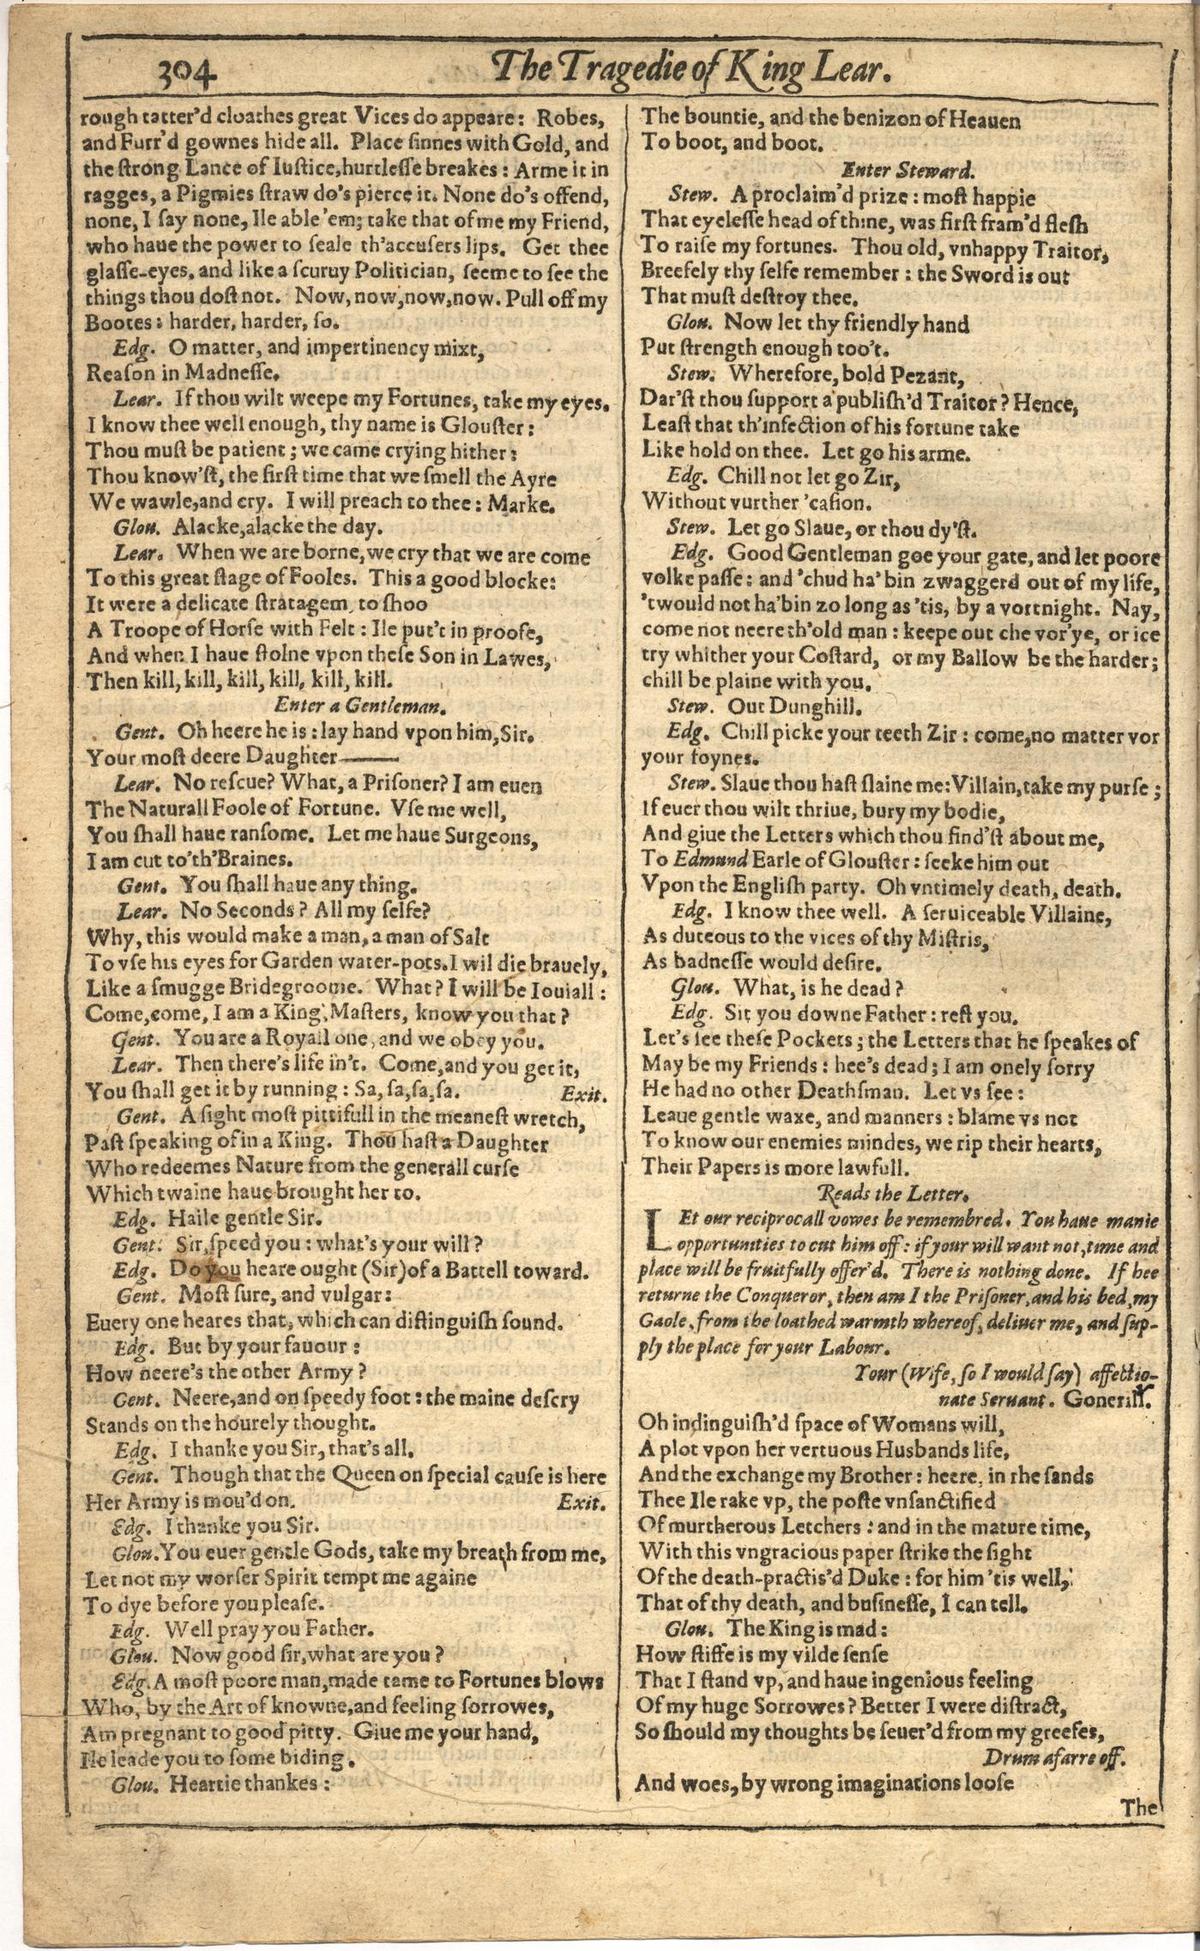 304
The Tragedie of King Lear.
rough tatter'd cloathes great Vices do appeare: Robes,
and Furr'd gownes hide all. Place ſinnes with Gold, and
the ſtrong Lance of Iuſtice, hurtleſſe breakes: Arme it in
ragges, a Pigmies ſtraw do's pierce it. None do's offend,
none, I ſay none, Ile able 'em; take that of me my Friend,
who haue the power to ſeale th'accuſers lips. Get thee
glaſſe-eyes, and like a ſcuruy Politician, ſeeme to ſee the
things thou doſt not. Now, now, now, now. Pull off my
Bootes: harder, harder, ſo.
Edg. O matter, and impertinency mixt,
Reaſon in Madneſſe.
Lear. If thou wilt weepe my Fortunes, take my eyes.
I know thee well enough, thy name is Glouſter:
Thou muſt be patient; we came crying hither:
Thou know'ſt, the firſt time that we ſmell the Ayre
We wawle, and cry. I will preach to thee: Marke.
Glou. Alacke, alacke the day.
Lear. When we are borne, we cry that we are come
To this great ſtage of Fooles. This a good blocke:
It were a delicate ſtratagem to ſhoo
A Troope of Horſe with Felt: Ile put't in proofe,
And when I haue ſtolne vpon theſe Son in Lawes,
Then kill, kill, kill, kill, kill, kill.
Enter a Gentleman.
Gent. Oh heere he is: lay hand vpon him, Sir.
Your moſt deere Daughter——
Lear. No reſcue? What, a Priſoner? I am euen
The Naturall Foole of Fortune. Vſe me well,
You ſhall haue ranſome. Let me haue Surgeons,
I am cut to'th'Braines.
Gent. You ſhall haue any thing.
Lear. No Seconds? All my ſelfe?
Why, this would make a man, a man of Salt
To vſe his eyes for Garden water-pots. I wil die brauely,
Like a ſmugge Bridegroome. What? I will be Iouiall:
Come, come, I am a King, Maſters, know you that?
Gent. You are a Royall one, and we obey you.
Lear. Then there's life in't. Come, and you get it,
You ſhall get it by running: Sa, ſa, ſa, ſa. Exit.
Gent. A ſight moſt pittifull in the meaneſt wretch,
Paſt ſpeaking of in a King. Thou haſt a Daughter
Who redeemes Nature from the generall curſe
Which twaine haue brought her to.
Edg. Haile gentle Sir.
Gent. Sir, ſpeed you: what's your will?
Edg. Do you heare ought (Sir) of a Battell toward.
Gent. Moſt ſure, and vulgar:
Euery one heares that, which can diſtinguiſh ſound.
Edg. But by your fauour:
How neere's the other Army?
Gent. Neere, and on ſpeedy foot: the maine deſcry
Stands on the hourely thought.
Edg. I thanke you Sir, that's all.
Gent. Though that the Queen on ſpecial cauſe is here
Her Army is mou'd on. Exit.
Edg. I thanke you Sir.
Glou. You euer gentle Gods, take my breath from me,
Let not my worſer Spirit tempt me againe
To dye before you pleaſe.
Edg. Well pray you Father.
Glou. Now good ſir, what are you?
Edg. A moſt poore man, made tame to Fortunes blows
Who, by the Art of knowne, and feeling ſorrowes,
Am pregnant to good pitty. Giue me your hand,
Ile leade you to ſome biding.
Glou. Heartie thankes:
The bountie, and the benizon of Heauen
To boot, and boot.
Enter Steward.
Stew. A proclaim'd prize: moſt happie
That eyeleſſe head of thine, was firſt fram'd fleſh
To raiſe my fortunes. Thou old, vnhappy Traitor,
Breefely thy ſelfe remember: the Sword is out
That muſt deſtroy thee.
Glou. Now let thy friendly hand
Put ſtrength enough too't.
Stew. Wherefore, bold Pezant,
Dar'ſt thou ſupport a publiſh'd Traitor? Hence,
Leaſt that th'infection of his fortune take
Like hold on thee. Let go his arme.
Edg. Chill not let go Zir,
Without vurther 'caſion.
Stew. Let go Slaue, or thou dy'ſt.
Edg. Good Gentleman goe your gate, and let poore
volke paſſe: and 'chud ha' bin zwaggerd out of my life,
'twould not ha'bin zo long as 'tis, by a vortnight. Nay,
come not neere th'old man: keepe out che vor'ye, or ice
try whither your Coſtard, or my Ballow be the harder;
chill be plaine with you.
Stew. Out Dunghill.
Edg. Chill picke your teeth Zir: come, no matter vor
your foynes.
Stew. Slaue thou haſt ſlaine me: Villain, take my purſe;
If euer thou wilt thriue, bury my bodie,
And giue the Letters which thou find'ſt about me,
To Edmund Earle of Glouſter: ſeeke him out
Vpon the Engliſh party. Oh vntimely death, death.
Edg. I know thee well. A ſeruiceable Villaine,
As duteous to the vices of thy Miſtris,
As badneſſe would deſire.
Glou. What, is he dead?
Edg. Sit you downe Father: reſt you.
Let's ſee theſe Pockets; the Letters that he ſpeakes of
May be my Friends: hee's dead; I am onely ſorry
He had no other Deathſman. Let vs ſee:
Leaue gentle waxe, and manners: blame vs not
To know our enemies mindes, we rip their hearts,
Their Papers is more lawfull.
Reads the Letter.
LEt our reciprocall vowes be remembred. You haue manie
opportunities to cut him off: if your will want not, time and
place will be fruitfully offer'd. There is nothing done. If hee
returne the Conqueror, then am I the Priſoner, and his bed, my
Gaole, from the loathed warmth whereof, deliuer me, and ſup-
ply the place for your Labour.
Your (Wife, ſo I would ſay) affectio-
nate Seruant. Gonerill.
Oh indinguiſh'd ſpace of Womans will,
A plot vpon her vertuous Husbands life,
And the exchange my Brother: heere, in rhe ſands
Thee Ile rake vp, the poſte vnſanctified
Of murtherous Letchers: and in the mature time,
With this vngracious paper ſtrike the ſight
Of the death-practis'd Duke: for him 'tis well,
That of thy death, and buſineſſe, I can tell.
Glou. The King is mad:
How ſtiffe is my vilde ſenſe
That I ſtand vp, and haue ingenious feeling
Of my huge Sorrowes? Better I were diſtract,
So ſhould my thoughts be ſeuer'd from my greefes,
Drum afarre off.
And woes, by wrong imaginations looſe
The